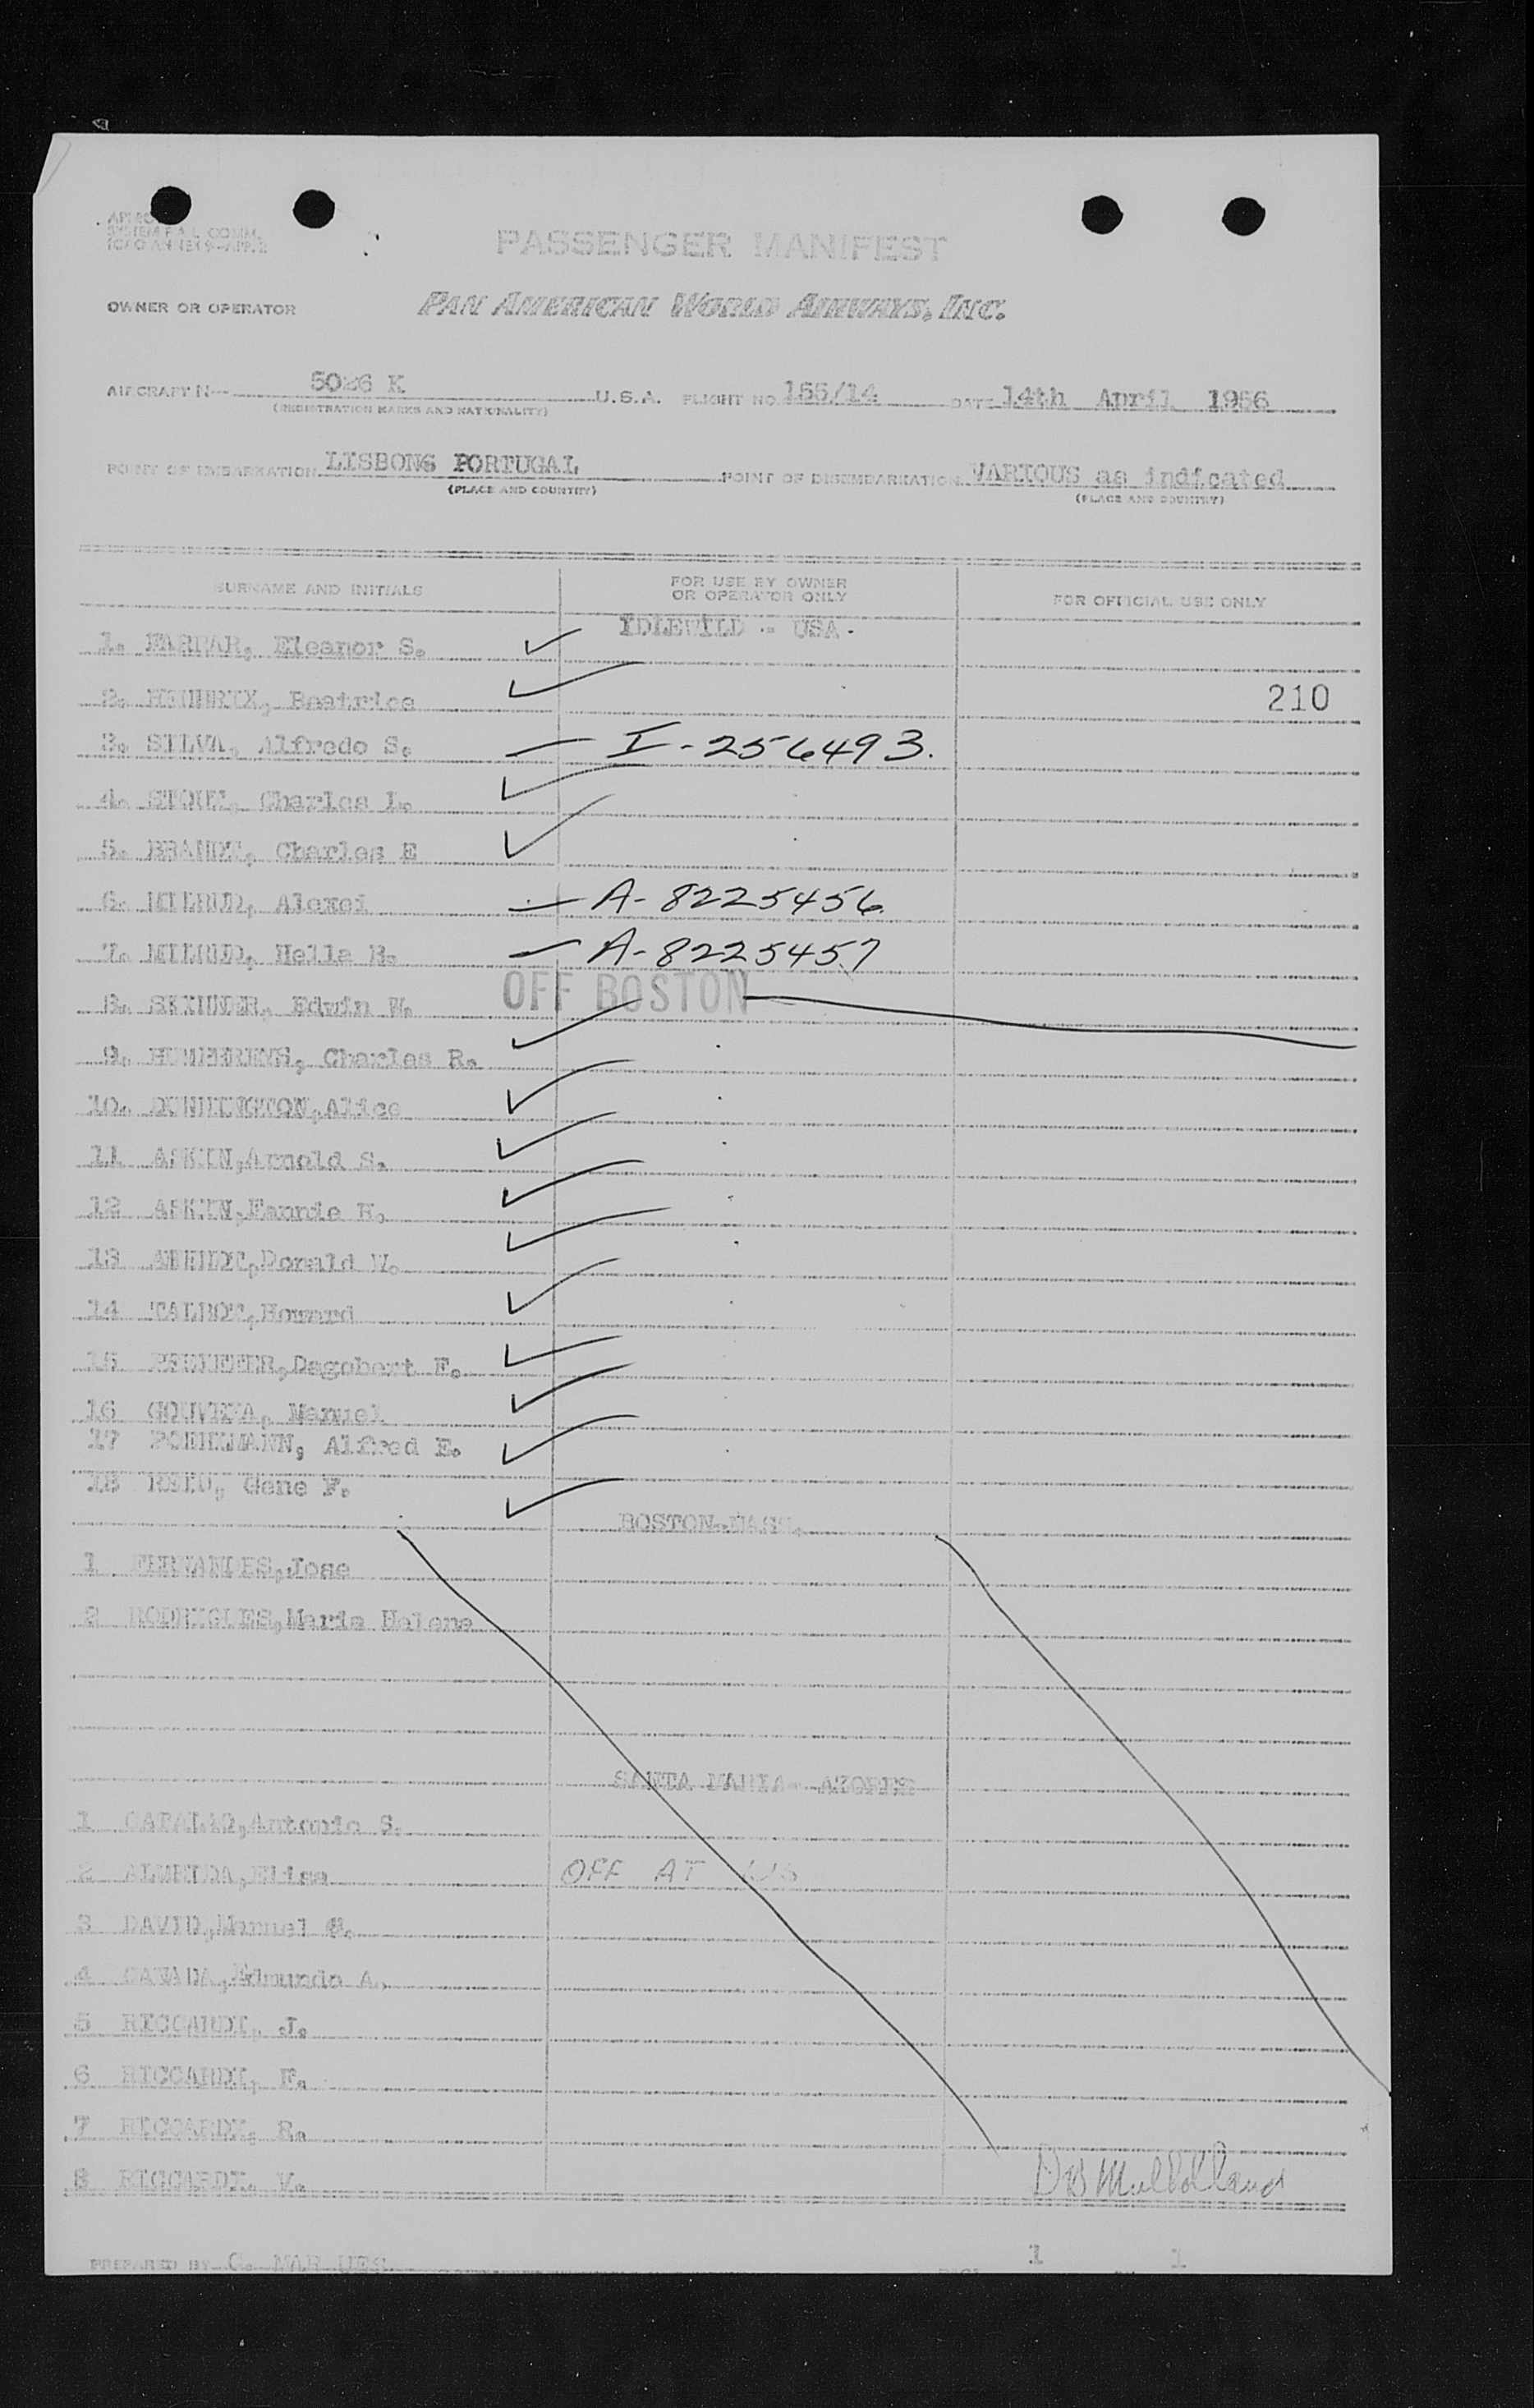 SYSTEM F.A.L. COMM.
ICAO ANNEX 9-APP. 2
PASSENGER MANIFEST
OWNER OR OPERATOR PAN AMERICAN WORLD AIRWAYS, INC.
AIRCRAFT N- 5026 K U.S.A. FLIGHT NO. 155/14 DATE 14th April 1956
(REGISTRATION MARKS AND NATIONALITY)
POINT OF EMBARKATION LISBONG PORTUGAL POINT OF DISEMBARKATION VARIOUS as indicated
(PLACE AND COUNTRY) (PLACE AND COUNTRY)
SURNAME AND INITIALS FOR USE BY OWNER OR OPERATOR ONLY FOR OFFICIAL USE ONLY
IDLEWILD - USA.
1. FARRAR, Eleanor S.
2. HENDRIX, Beatrice 210
3. SILVA, Alfredo S. I-256493.
4. Charles L.
5. BRANDT, Charles E
6. MILRUD, Alexei A-8225456
7. MILRUD, Hella R. A-8225457
8. Edwin W. OFF BOSTON
9. HUMPHREYS, Charles R.
10. DUNNINGTON, Alice
11 ASKIN, Arnold S.
12 ASKIN, Fannie R.
13 Donald W.
14 TALBOT, Howard
15 PFEIFFER, Dagobert F.
16 GOUVEIA, Manuel
17 POEHLMANN, Alfred E.
18 REED, Gene F.
BOSTON-MASS.
1 FERNANDES, Jose
2 RODRIGUES, Maria Helena
SANTA MARIA - AZORES
1 CATALAO, Antonio S.
2 ALMEIDA, Elisa OFF AT LIS
3 DAVID, Manuel G.
4 CANADA, Edmundo A.
5 RICCARDI, J.
6 RICCARDI, F.
7 RICCARDI, R.
8 RICCARDI, V.
D B Mulholland
PREPARED BY G. MAR UES 1 1